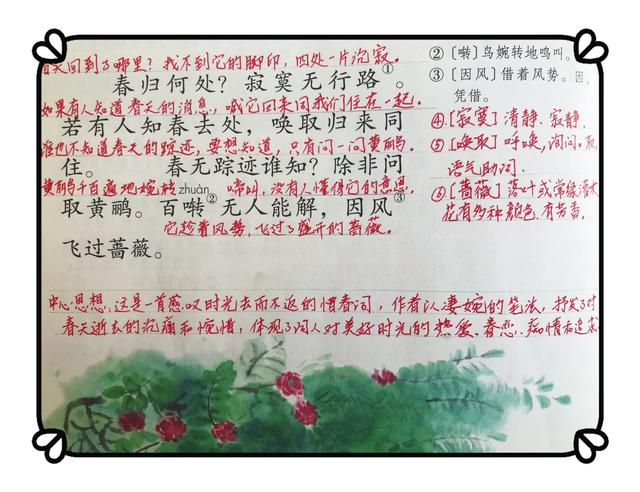 春天回到了哪里？找不到它的脚印，四处一片沉寂。
春归何处？寂寞无行路①。
如果有人知道春天的消息，喊它回来同我们住在一起。
若有人知春去处，唤取归来同
谁也不知道春天的踪迹，要想知道，只有问一问黄鹂。
住。 春无踪迹谁知？除非问
黄鹂千百遍地婉转 zhuàn 啼叫，没有人懂得它的意思，
取黄鹂。百啭②无人能解，因风③
它趁着风势，飞过了盛开的蔷薇。
飞过蔷薇。
②〔啭〕鸟婉转地鸣叫。
③〔因风〕借着风势。因，
凭借。
④〔寂寞〕清静、寂静。
⑤〔唤取〕呼唤，询问。取，
语气助词。
⑥〔蔷薇〕落叶或常绿灌木
花有多种颜色，有芳香。
中心思想：这是一首感叹时光去而不返的惜春词，作者以凄婉的笔法，抒发了对
春天逝去的沉痛和惋惜，体现了词人对美好时光的热爱、眷恋、痴情和追求